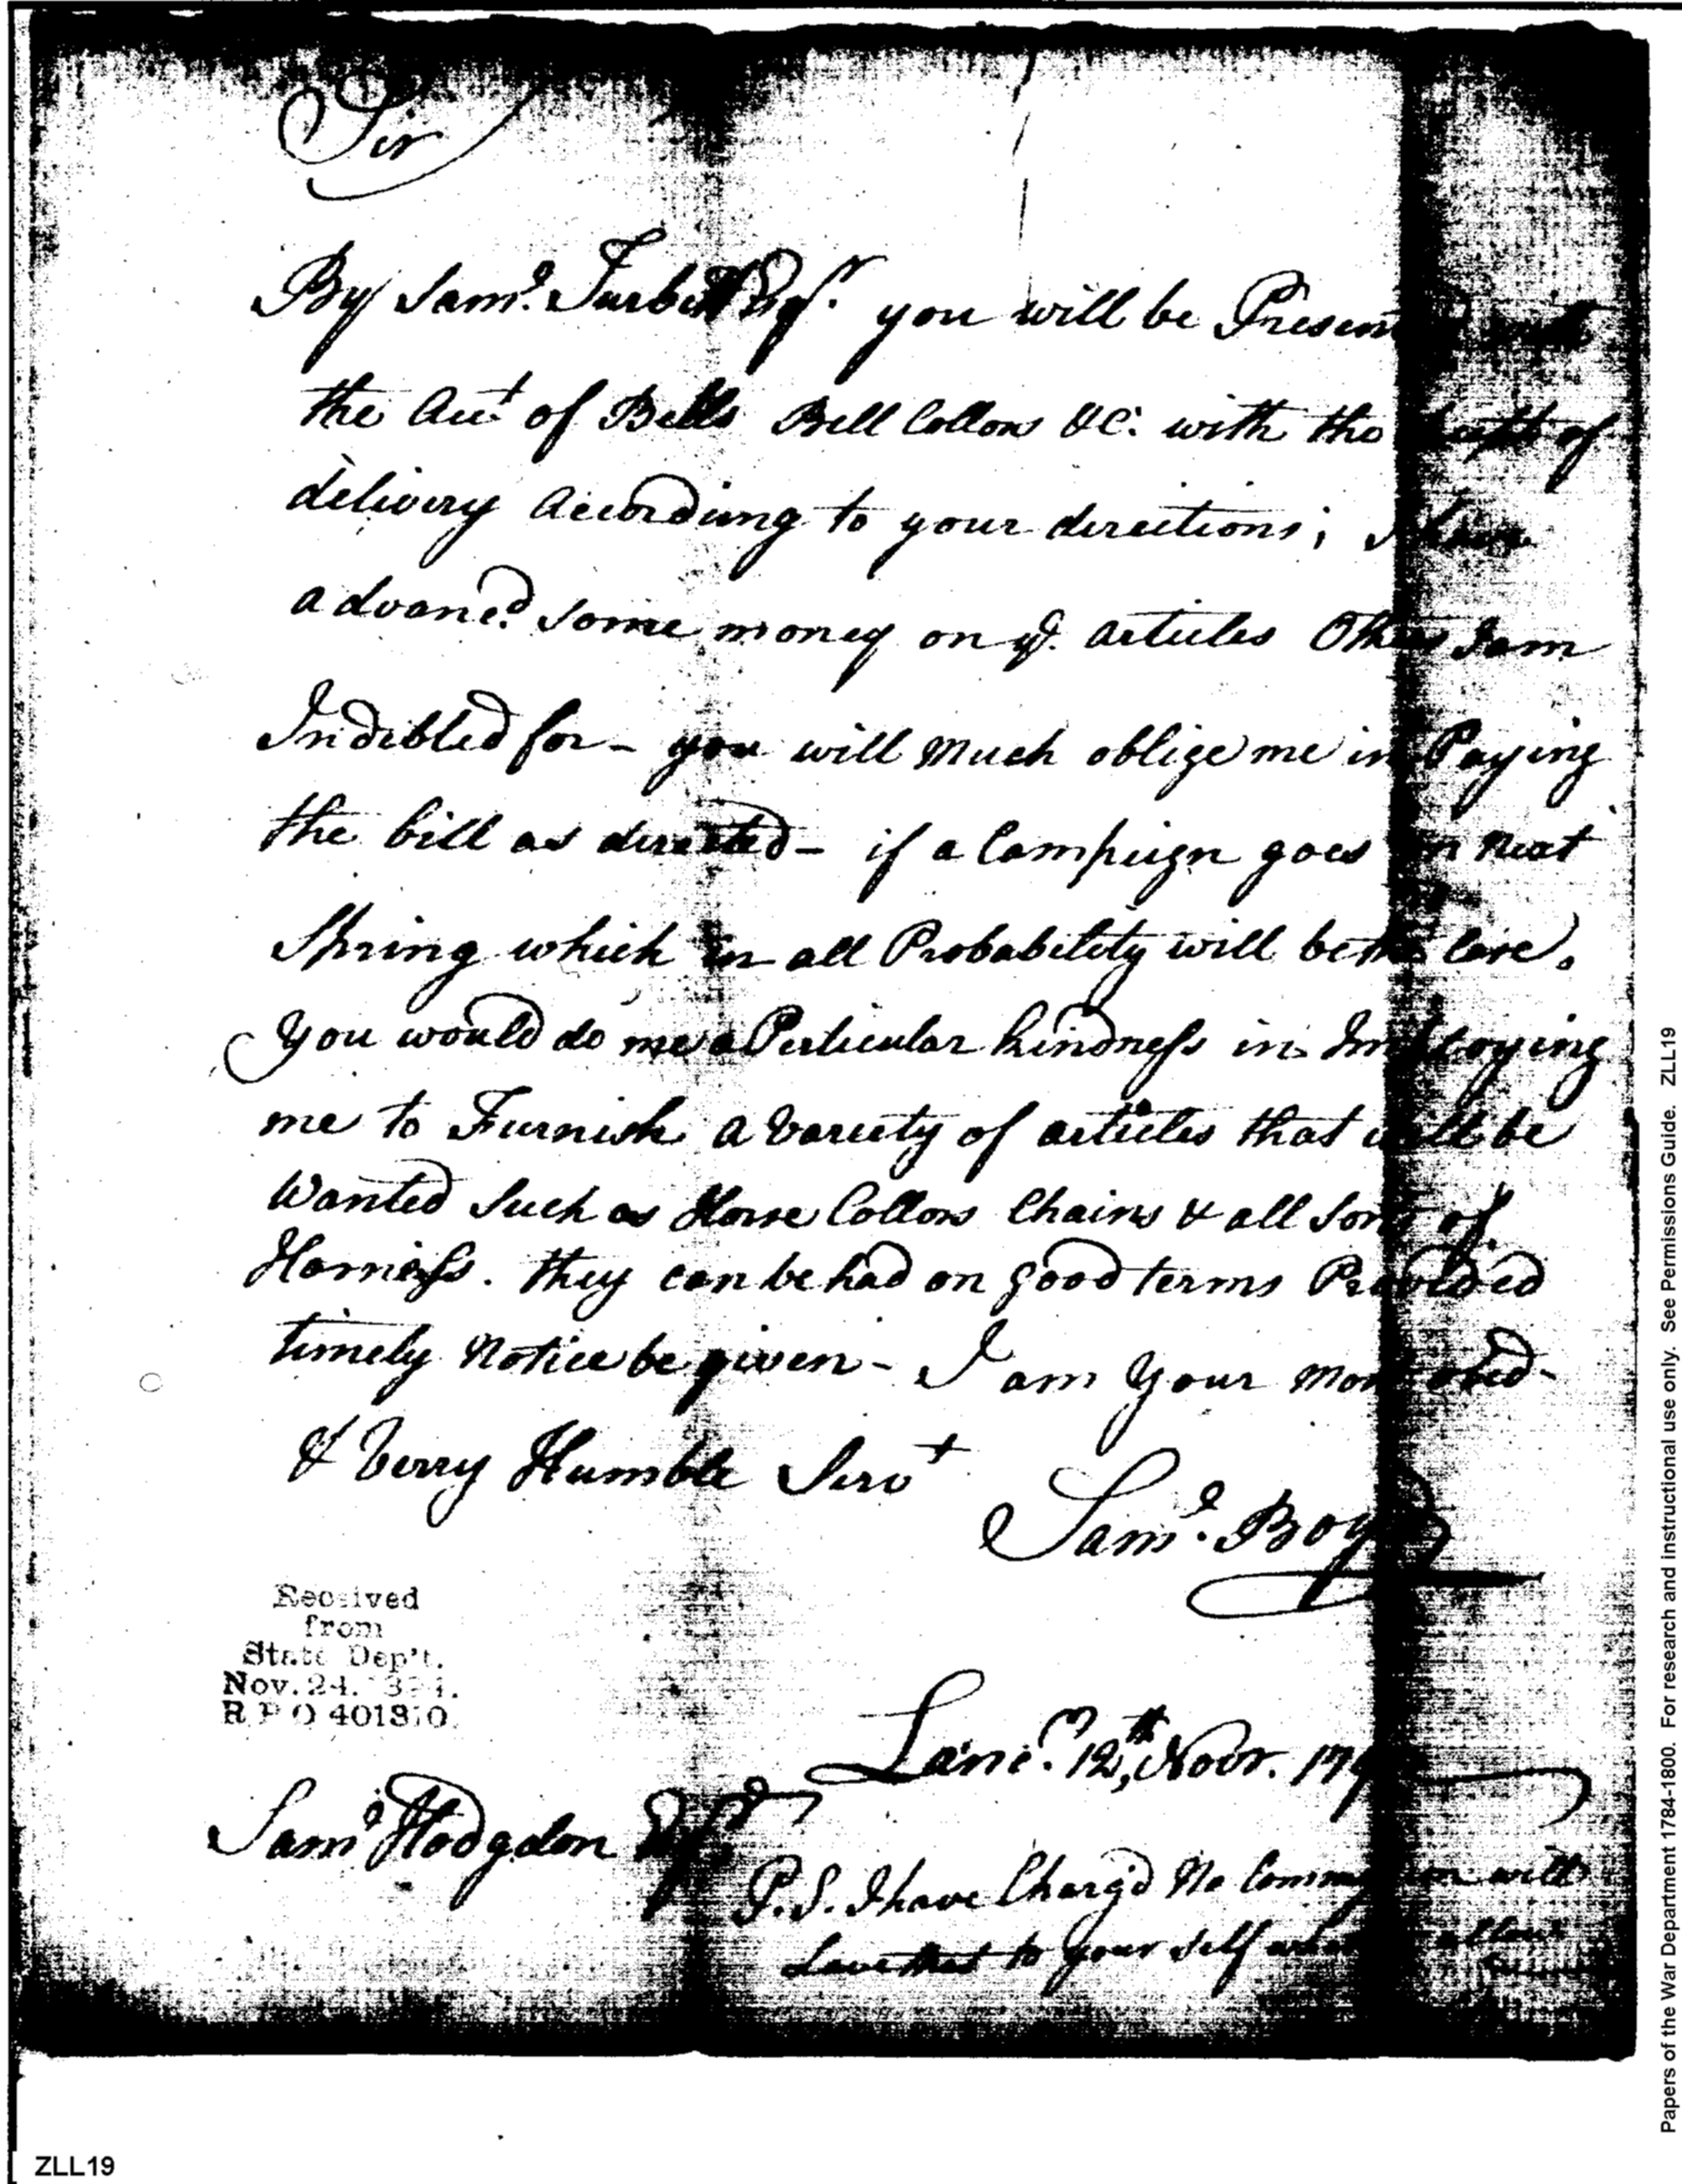 Sir
By Saml. Turbett Esqr. you will be Presented with
the Acct of Bells Bell Collors &C. with the of
delivery According to your directions; I have
advanc'd some money on ye. articles Others I am
Indebted for - you will much oblige me in Paying
the bill as directed - if a Campeign goes on next
Spring which in all Probability will be the Case.
You would do me a Perticular kindness in Imploying
me to Furnish a variety of articles that will be
Wanted Such as Horse Collors Chains & all sorts of
Harness. they can be had on good terms Provided
timely Notice be given - I am Your most obed-
& Verry Humble Servt
Saml. Boyd
Received
from
State Dep't.
Nov. 24.
R P O 401810.
Lancr. 12th, Novr. 179
Saml Hodgdon Esqr
P.S. I have Charg'd No Commission will
Leave that to your self allow
Papers of the War Department 1784-1800. For research and instructional use only. See Permissions Guide. ZLL19
ZLL19